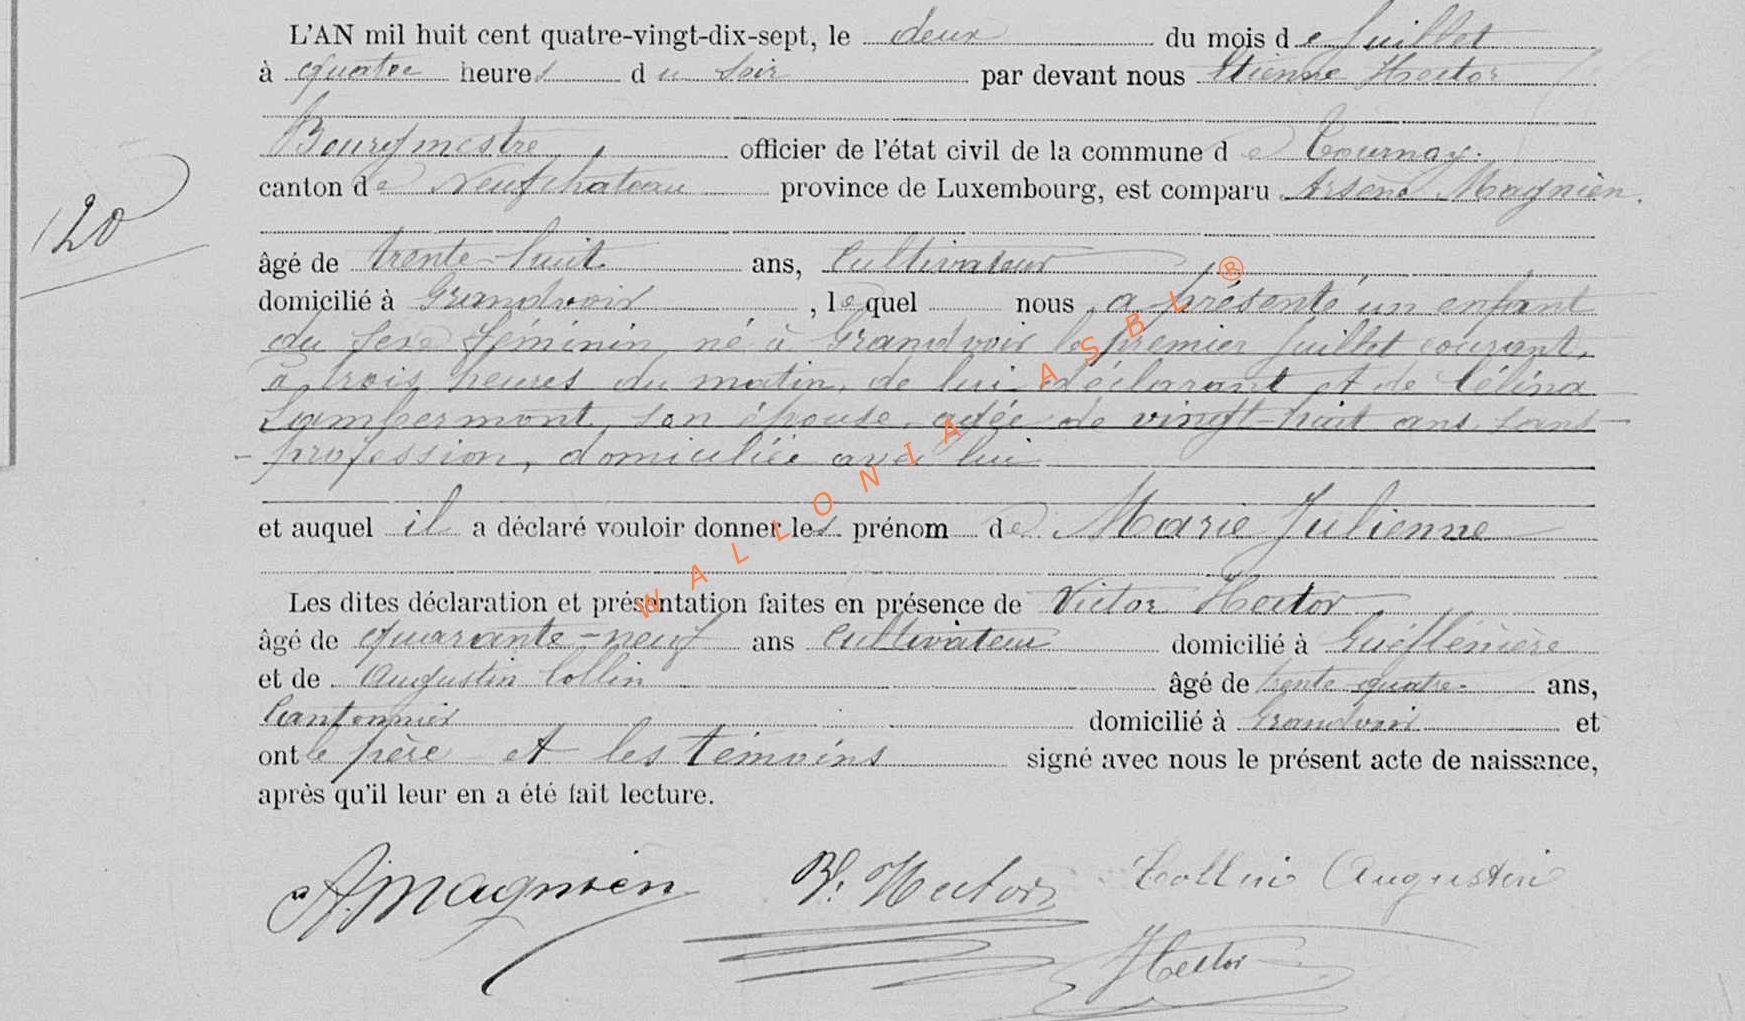 L'AN mil huit cent quatre-vingt-dix-sept, le deux du mois de Juillet
à quatre heures du soir par devant nous Etienne Hector
Bourgmestre officier de l'état civil de la commune de Tournay.
canton de Neufchâteau province de Luxembourg, est comparu Arsène Magnien.
120
âgé de trente-huit ans, Cultivateur
domicilié à Grandvoir, lequel nous a présenté un enfant
du sexe féminin, né à Grandvoir le premier Juillet courant,
à trois heures du matin, de lui déclarant et de Célina
Lampermont, son épouse, agée de vingt-huit ans, sans
profession, domiciliée avec lui
et auquel il a déclaré vouloir donner les prénom de Marie Julienne
Les dites déclaration et présentation faites en présence de Victor Hector
âgé de quarante-neuf ans Cultivateur domicilié à
et de Augustin Collin âgé de trente-quatre ans,
Cantonnier domicilié à Grandvoir et
ont le père et les témoins signé avec nous le présent acte de naissance,
après qu'il leur en a été fait lecture.
A. Magnien V. Hector Collin Augustin
Hector
WALLONIA ASBL ®